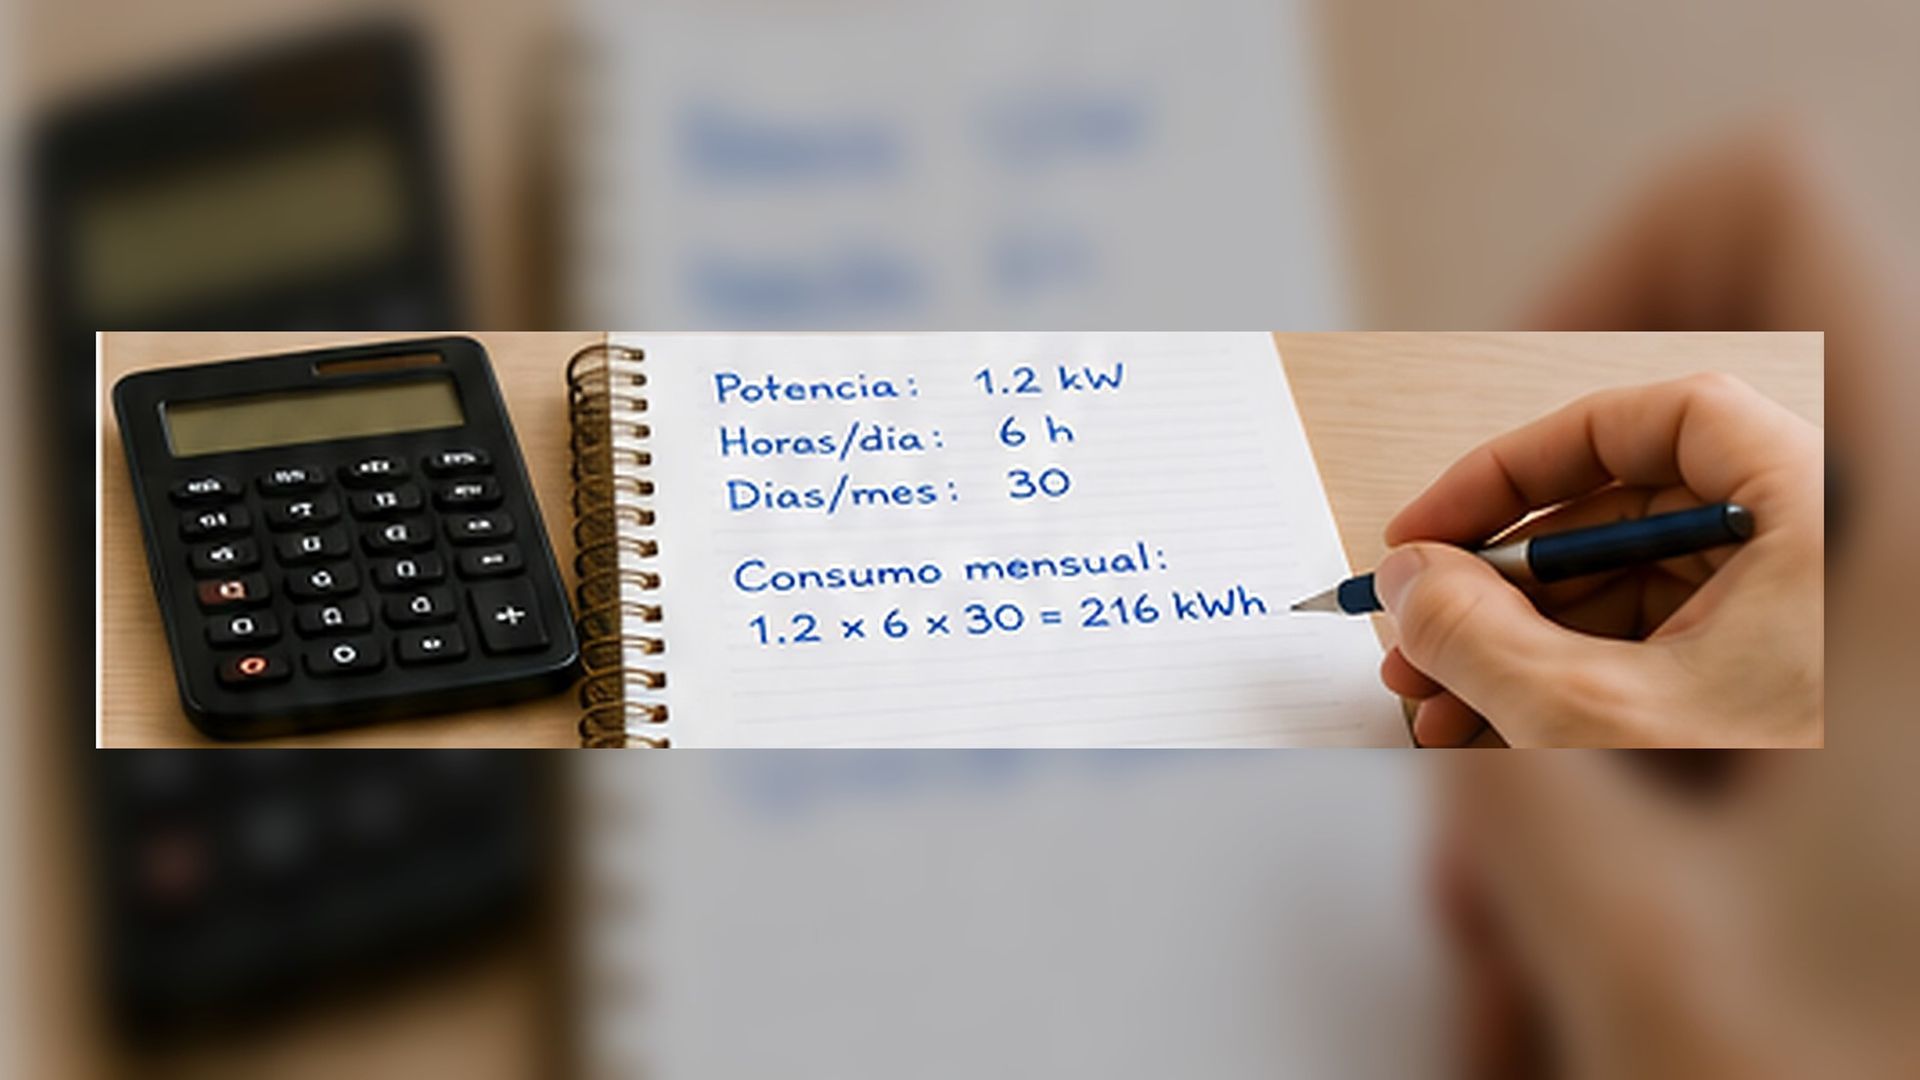 Potencia: 1.2 kW
Horas/dia: 6 h
Dias/mes: 30
Consumo mensual:
1.2 x 6 x 30 = 216 kWh